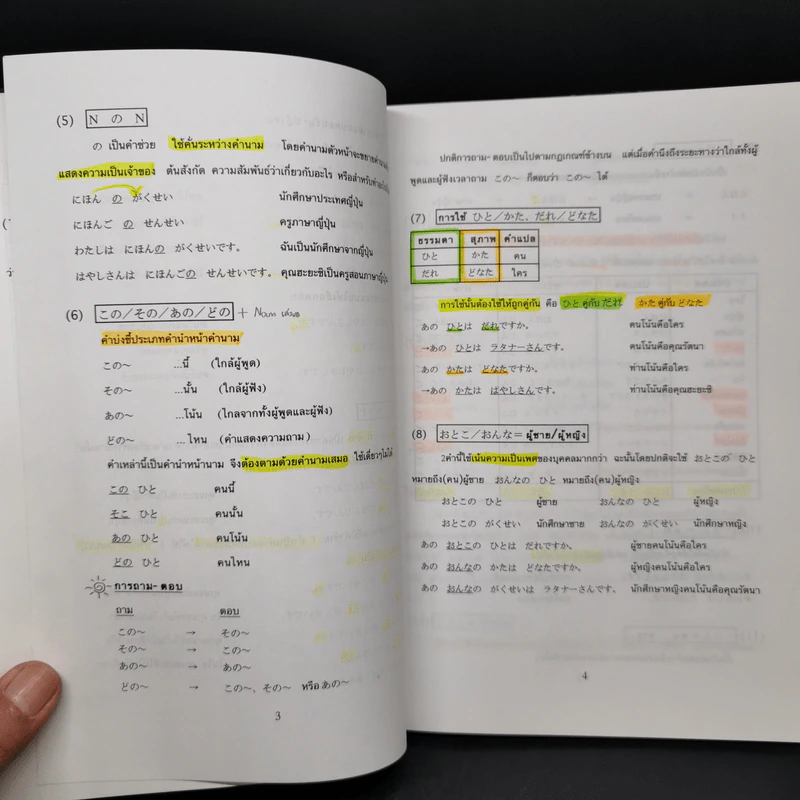 (5) N の N
の เป็นคำช่วย ใช้คั่นระหว่างคำนาม โดยคำนามตัวหน้าจะขยายคำนาม
แสดงความเป็นเจ้าของ ต้นสังกัด ความสัมพันธ์ว่าเกี่ยวกับอะไร หรือสำหรับ
にほん の がくせい นักศึกษาประเทศญี่ปุ่น
にほんご の せんせい ครูภาษาญี่ปุ่น
わたしは にほんの がくせいです。 ฉันเป็นนักศึกษาจากญี่ปุ่น
はやしさんは にほんごの せんせいです。 คุณฮะยะชิเป็นครูสอนภาษาญี่ปุ่น
(6) この/その/あの/どの + Noun เสมอ
คำบ่งชี้ประเภทคำนำหน้าคำนาม
この～ ...นี้ (ใกล้ผู้พูด)
その～ ...นั้น (ใกล้ผู้ฟัง)
あの～ ...โน้น (ไกลจากทั้งผู้พูดและผู้ฟัง)
どの～ ...ไหน (คำแสดงความถาม)
คำเหล่านี้เป็นคำนำหน้านาม จึงต้องตามด้วยคำนามเสมอ ใช้เดี่ยวๆไม่ได้
この ひと คนนี้
そこ ひと คนนั้น
あの ひと คนโน้น
どの ひと คนไหน
การถาม-ตอบ
ถาม ตอบ
この～ → その～
その～ → この～
あの～ → あの～
どの～ → この～、その～ หรือ あの～
3
ปกติการถาม-ตอบเป็นไปตามกฎเกณฑ์ข้างบน แต่เมื่อคำนึงถึงระยะทางว่าใกล้ทั้งผู้
พูดและผู้ฟังเวลาถาม この～ ก็ตอบว่า この～ ได้
(7) การใช้ ひと/かた、だれ/どなた
ธรรมดา สุภาพ คำแปล
ひと かた คน
だれ どなた ใคร
การใช้นั้นต้องใช้ให้ถูกคู่กัน คือ ひと คู่กับ だれ かた คู่กับ どなた
あの ひとは だれですか。 คนโน้นคือใคร
→あの ひとは ラタナーさんです。 คนโน้นคือคุณรัตนา
あの かたは どなたですか。 ท่านโน้นคือใคร
→あの かたは はやしさんです。 ท่านโน้นคือคุณฮะยะชิ
(8) おとこ/おんな = ผู้ชาย/ผู้หญิง
2คำนี้ใช้เน้นความเป็นเพศของบุคคลมากกว่า ฉะนั้นโดยปกติจะใช้ おとこの ひと
หมายถึง(คน)ผู้ชาย おんなの ひと หมายถึง(คน)ผู้หญิง
おとこの ひと ผู้ชาย おんなの ひと ผู้หญิง
おとこの がくせい นักศึกษาชาย おんなの がくせい นักศึกษาหญิง
あの おとこの ひとは だれですか。 ผู้ชายคนโน้นคือใคร
あの おんなの かたは どなたですか。 ผู้หญิงคนโน้นคือใคร
あの おんなの がくせいは ラタナーさんです。 นักศึกษาหญิงคนโน้นคือคุณรัตนา
4